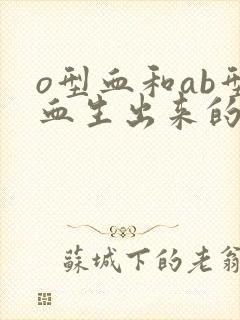 o型血和ab型
血生出来的
蘇城下的老翁